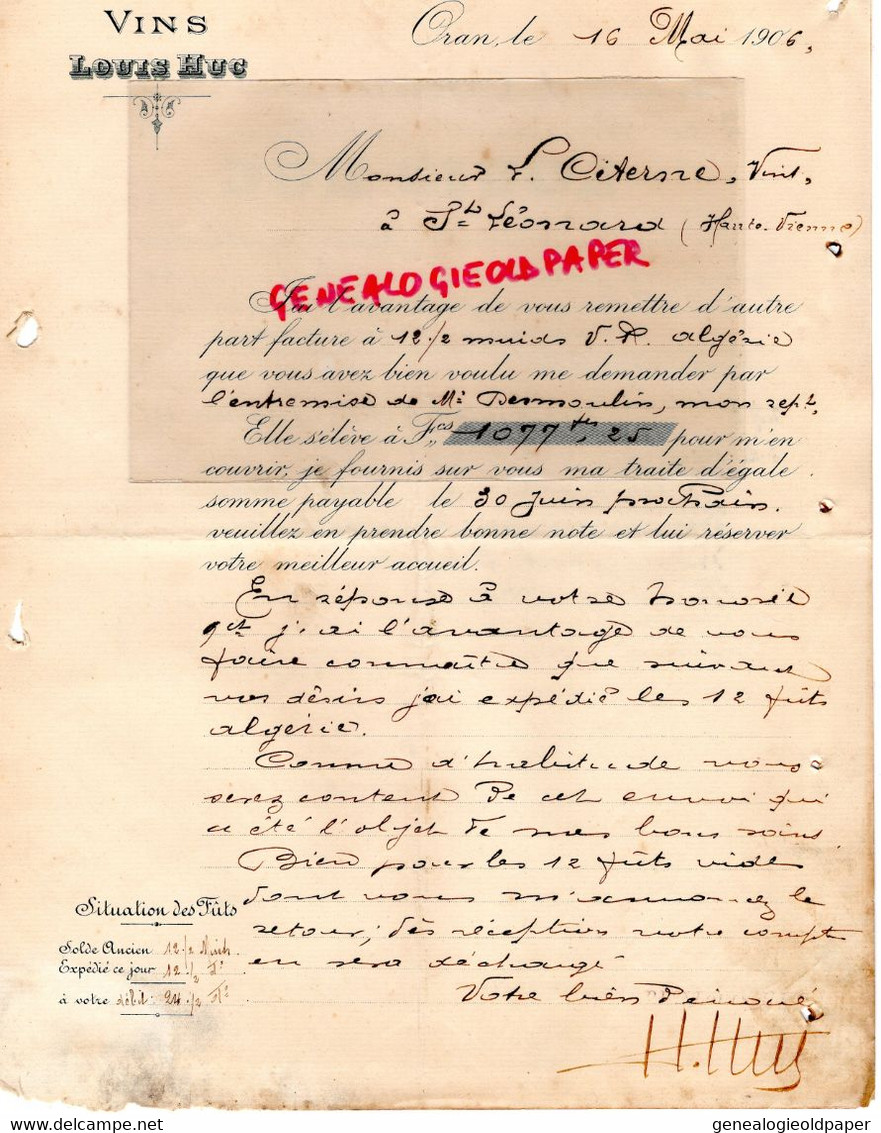 VINS
LOUIS HUC
Oran, le 16 Mai 1906,
Monsieur L. Citerne, Vins,
à St Léonard (Haute-Vienne)
GENEALOGIEOLDPAPER
J'ai l'avantage de vous remettre d'autre
part facture à 12./2 muids V. R. algérie
que vous avez bien voulu me demander par
l'entremise de Mr Desmoulin, mon rept.
Elle s'élève à Fcs 1077 frs, 25 pour m'en
couvrir, je fournis sur vous ma traite d'égale
somme payable le 30 Juin prochain.
veuillez en prendre bonne note et lui réserver
votre meilleur accueil.
En réponse à votre honorée
j'ai l'avantage de vous
faire connaître que suivant
vos désirs j'ai expédié les 12 fûts
algérie.
Comme d'habitude vous
serez content de cet envoi qui
a été l'objet de mes bons soins
Bien pour les 12 fûts vides
dont vous m'annoncez le
retour; dès réception votre compte
en sera déchargé
Votre bien dévoué
Situation des Fûts
Solde Ancien 12./2 Muids
Expédié ce jour 12./2 do
à votre débit: 24./2 do
genealogieoldpaper
delcampe.net